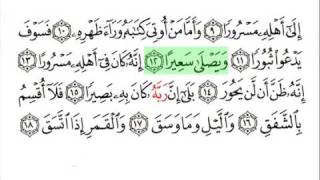 إِلَىٰ أَهْلِهِ مَسْرُورًا ٩ وَأَمَّا مَنْ أُوتِيَ كِتَٰبَهُ وَرَآءَ ظَهْرِهِ ١٠ فَسَوْفَ
يَدْعُوا ثُبُورًا ١١ وَيَصْلَىٰ سَعِيرًا ١٢ إِنَّهُ كَانَ فِي أَهْلِهِ مَسْرُورًا ١٣
إِنَّهُ ظَنَّ أَن لَّن يَحُورَ ١٤ بَلَىٰ إِنَّ رَبَّهُ كَانَ بِهِ بَصِيرًا ١٥ فَلَا أُقْسِمُ
بِالشَّفَقِ ١٦ وَالَّيْلِ وَمَا وَسَقَ ١٧ وَالْقَمَرِ إِذَا اتَّسَقَ ١٨